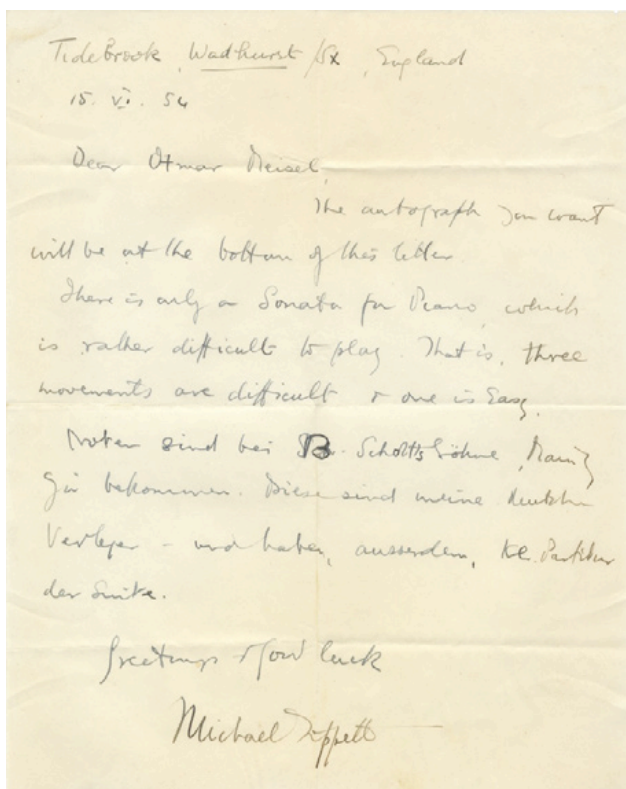 Tidebrook, Wadhurst /Sx, England
15. VI. 54
Dear Otmar Meisel,
The autograph you want
will be at the bottom of this letter.
There is only a Sonata for Piano, which
is rather difficult to play. That is, three
movements are difficult & one is Easy.
Noten sind bei B. Schott's Söhne, Mainz
zu bekommen. Diese sind meine deutschen
Verleger – und haben, ausserdem, Partitur
der Suite.
Greetings & good luck
Michael Tippett